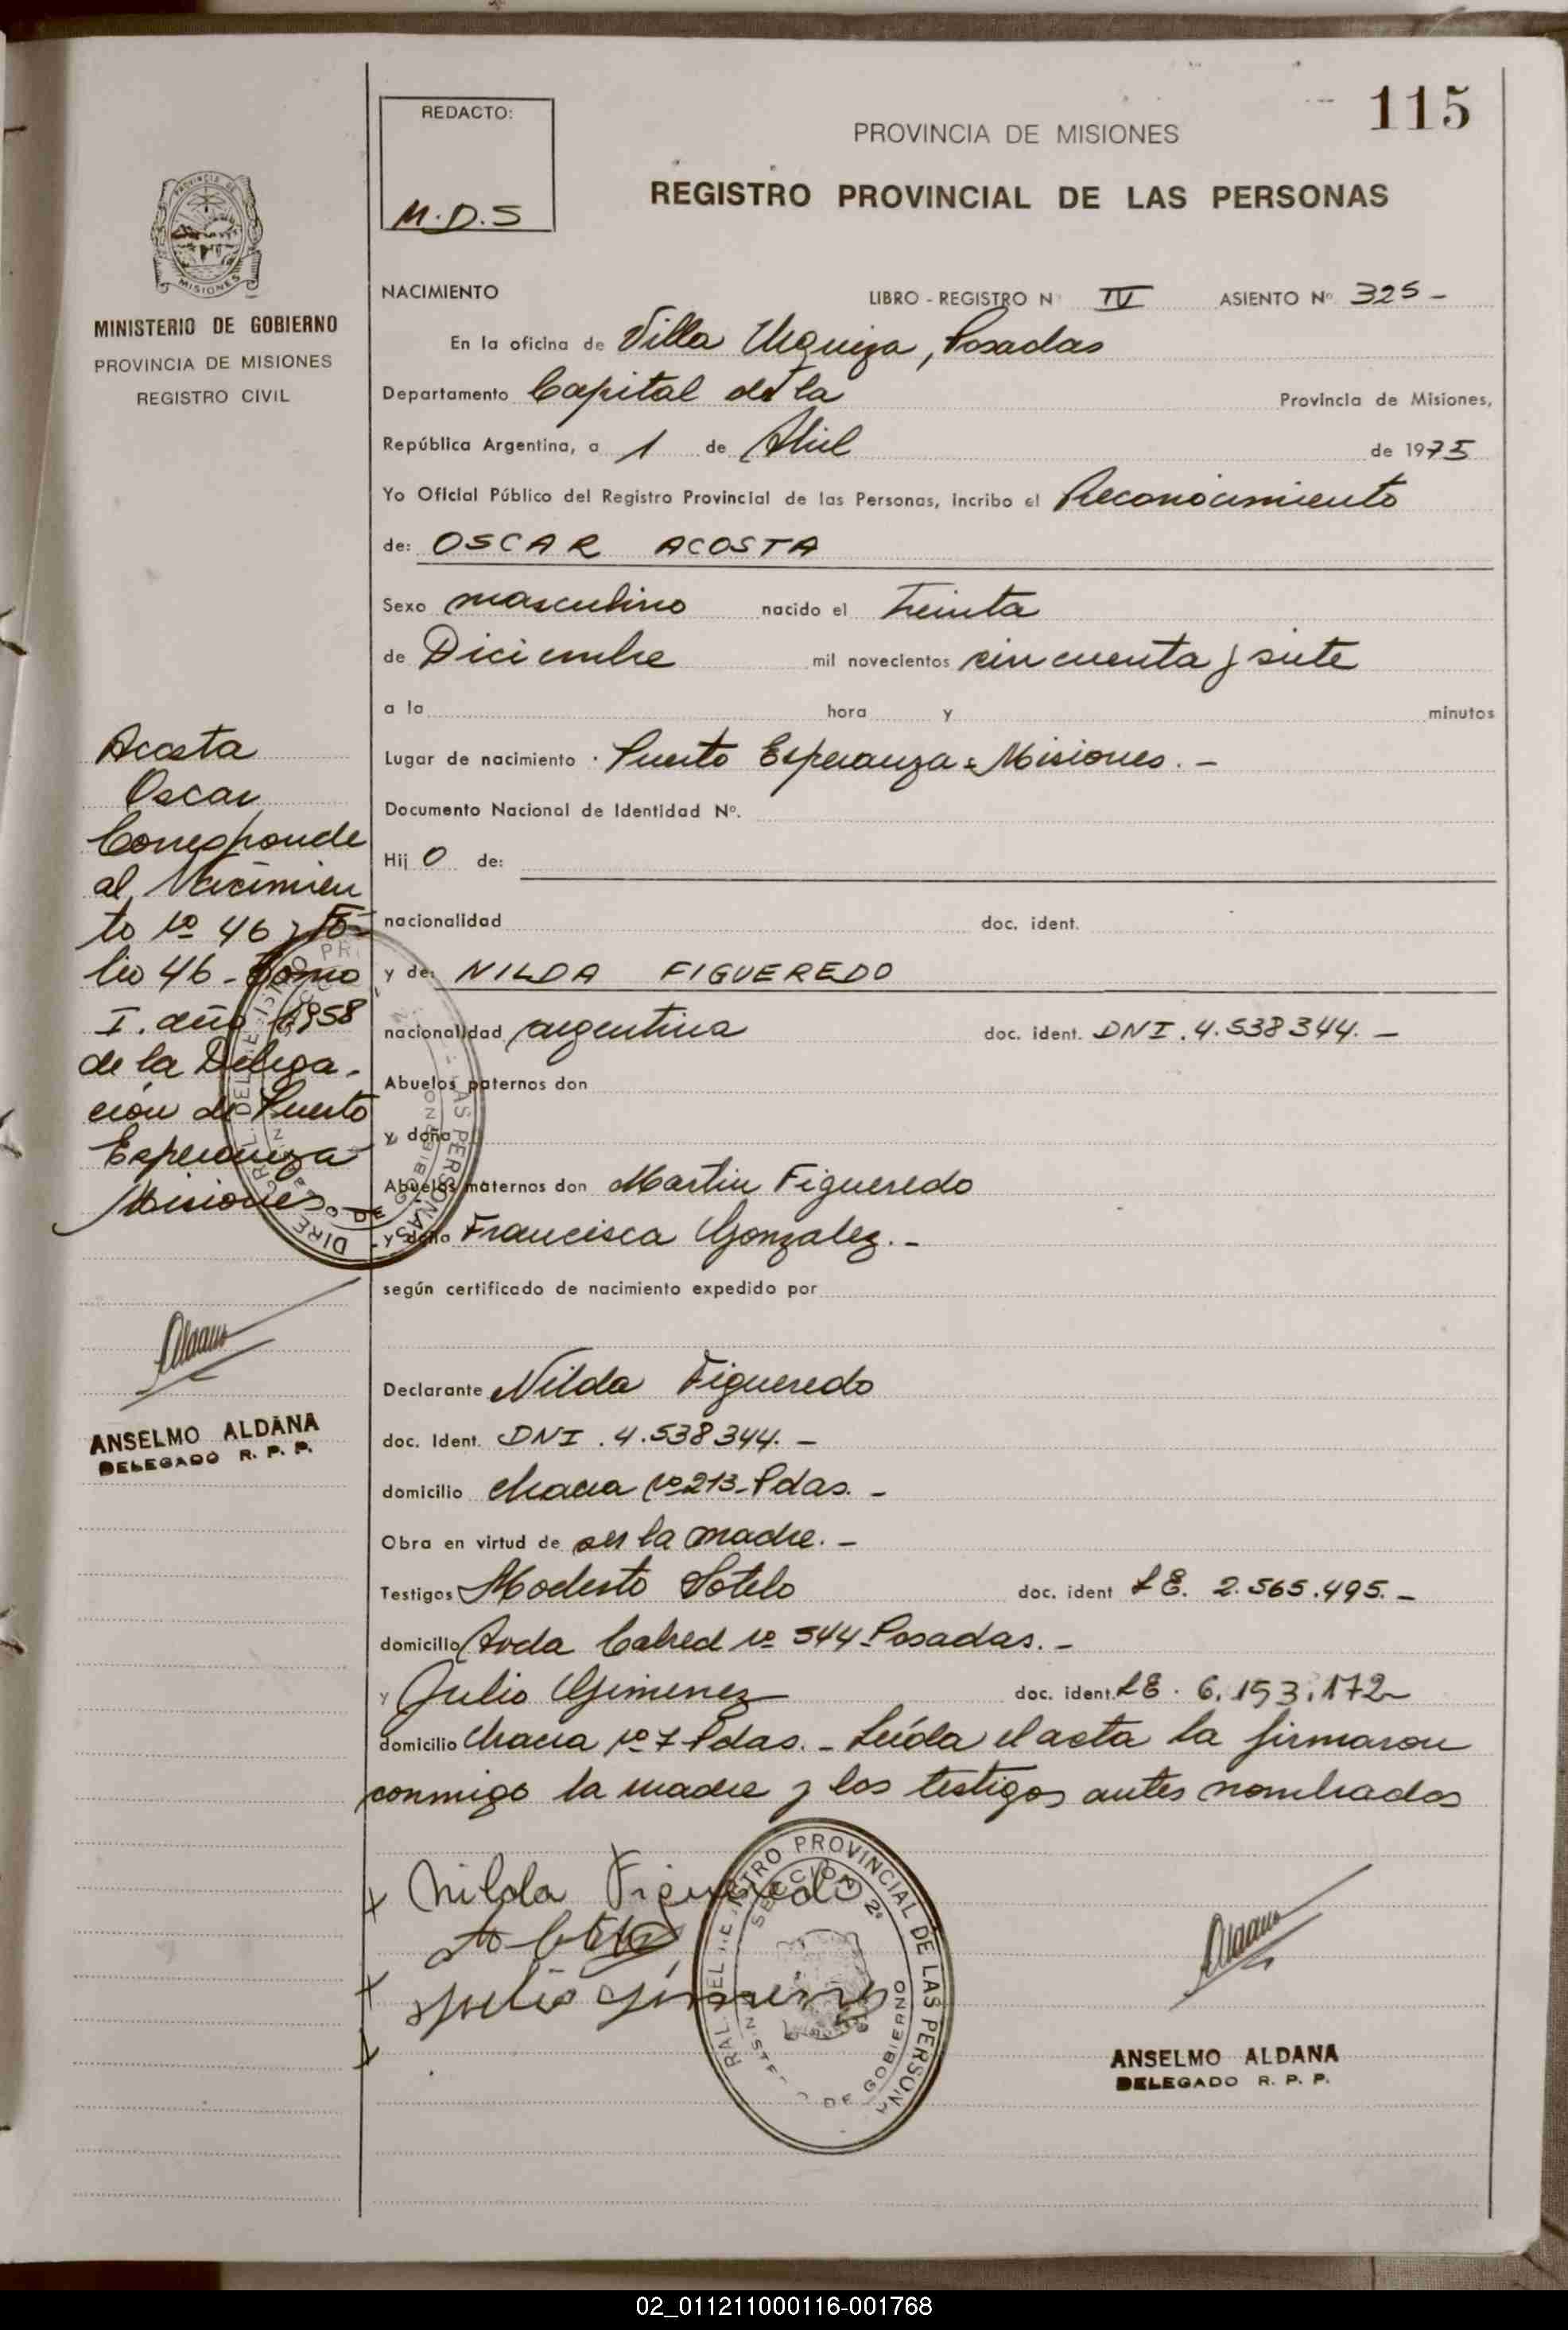 115
REDACTO:
M.D.S
PROVINCIA DE MISIONES
REGISTRO PROVINCIAL DE LAS PERSONAS
PROVINCIA DE
MISIONES
MINISTERIO DE GOBIERNO
PROVINCIA DE MISIONES
REGISTRO CIVIL
NACIMIENTO LIBRO - REGISTRO N IV ASIENTO Nº 325 -
En la oficina de Villa Urquiza, Posadas
Departamento Capital de la Provincia de Misiones,
República Argentina, a 1 de Abril de 1975
Yo Oficial Público del Registro Provincial de las Personas, incribo el Reconocimiento
de: OSCAR ACOSTA
Sexo masculino nacido el treinta
de Diciembre mil novecientos cincuenta y siete
a la hora y minutos
Lugar de nacimiento · Puerto Esperanza = Misiones. -
Documento Nacional de Identidad Nº.
Hij o de:
nacionalidad doc. ident.
y de: NILDA FIGUEREDO
nacionalidad argentina doc. ident. DNI. 4.538344. -
Abuelos paternos don
y doña
Abuelos maternos don Martin Figueredo
y doña Francisca Gonzalez. -
según certificado de nacimiento expedido por
Declarante Nilda Figueredo
doc. Ident. DNI. 4.538344. -
domicilio chacra Nº 213 - Pdas. -
Obra en virtud de ser la madre. -
Testigos Modesto Sotelo doc. ident LE. 2.565.495. -
domicilio Avda Cabred Nº 544 - Posadas. -
y Julio Gimenez doc. ident. LE. 6.153.172 -
domicilio chacra Nº 7 Pdas. - Leída el acta la firmaron
conmigo la madre y los testigos antes nombrados
Nilda Figueredo
Julio Gimenez
REGISTRO PROVINCIAL DE LAS PERSONAS
SECCION 2ª
DE GOBIERNO
ANSELMO ALDANA
DELEGADO R. P. P.
Acosta
Oscar
Corresponde
al Nacimien
to Nº 46 y Fo-
lio 46 - Tomo
I. año 1958
de la Delega-
ción de Puerto
Esperanza
Misiones
ANSELMO ALDANA
DELEGADO R. P. P.
02_011211000116-001768